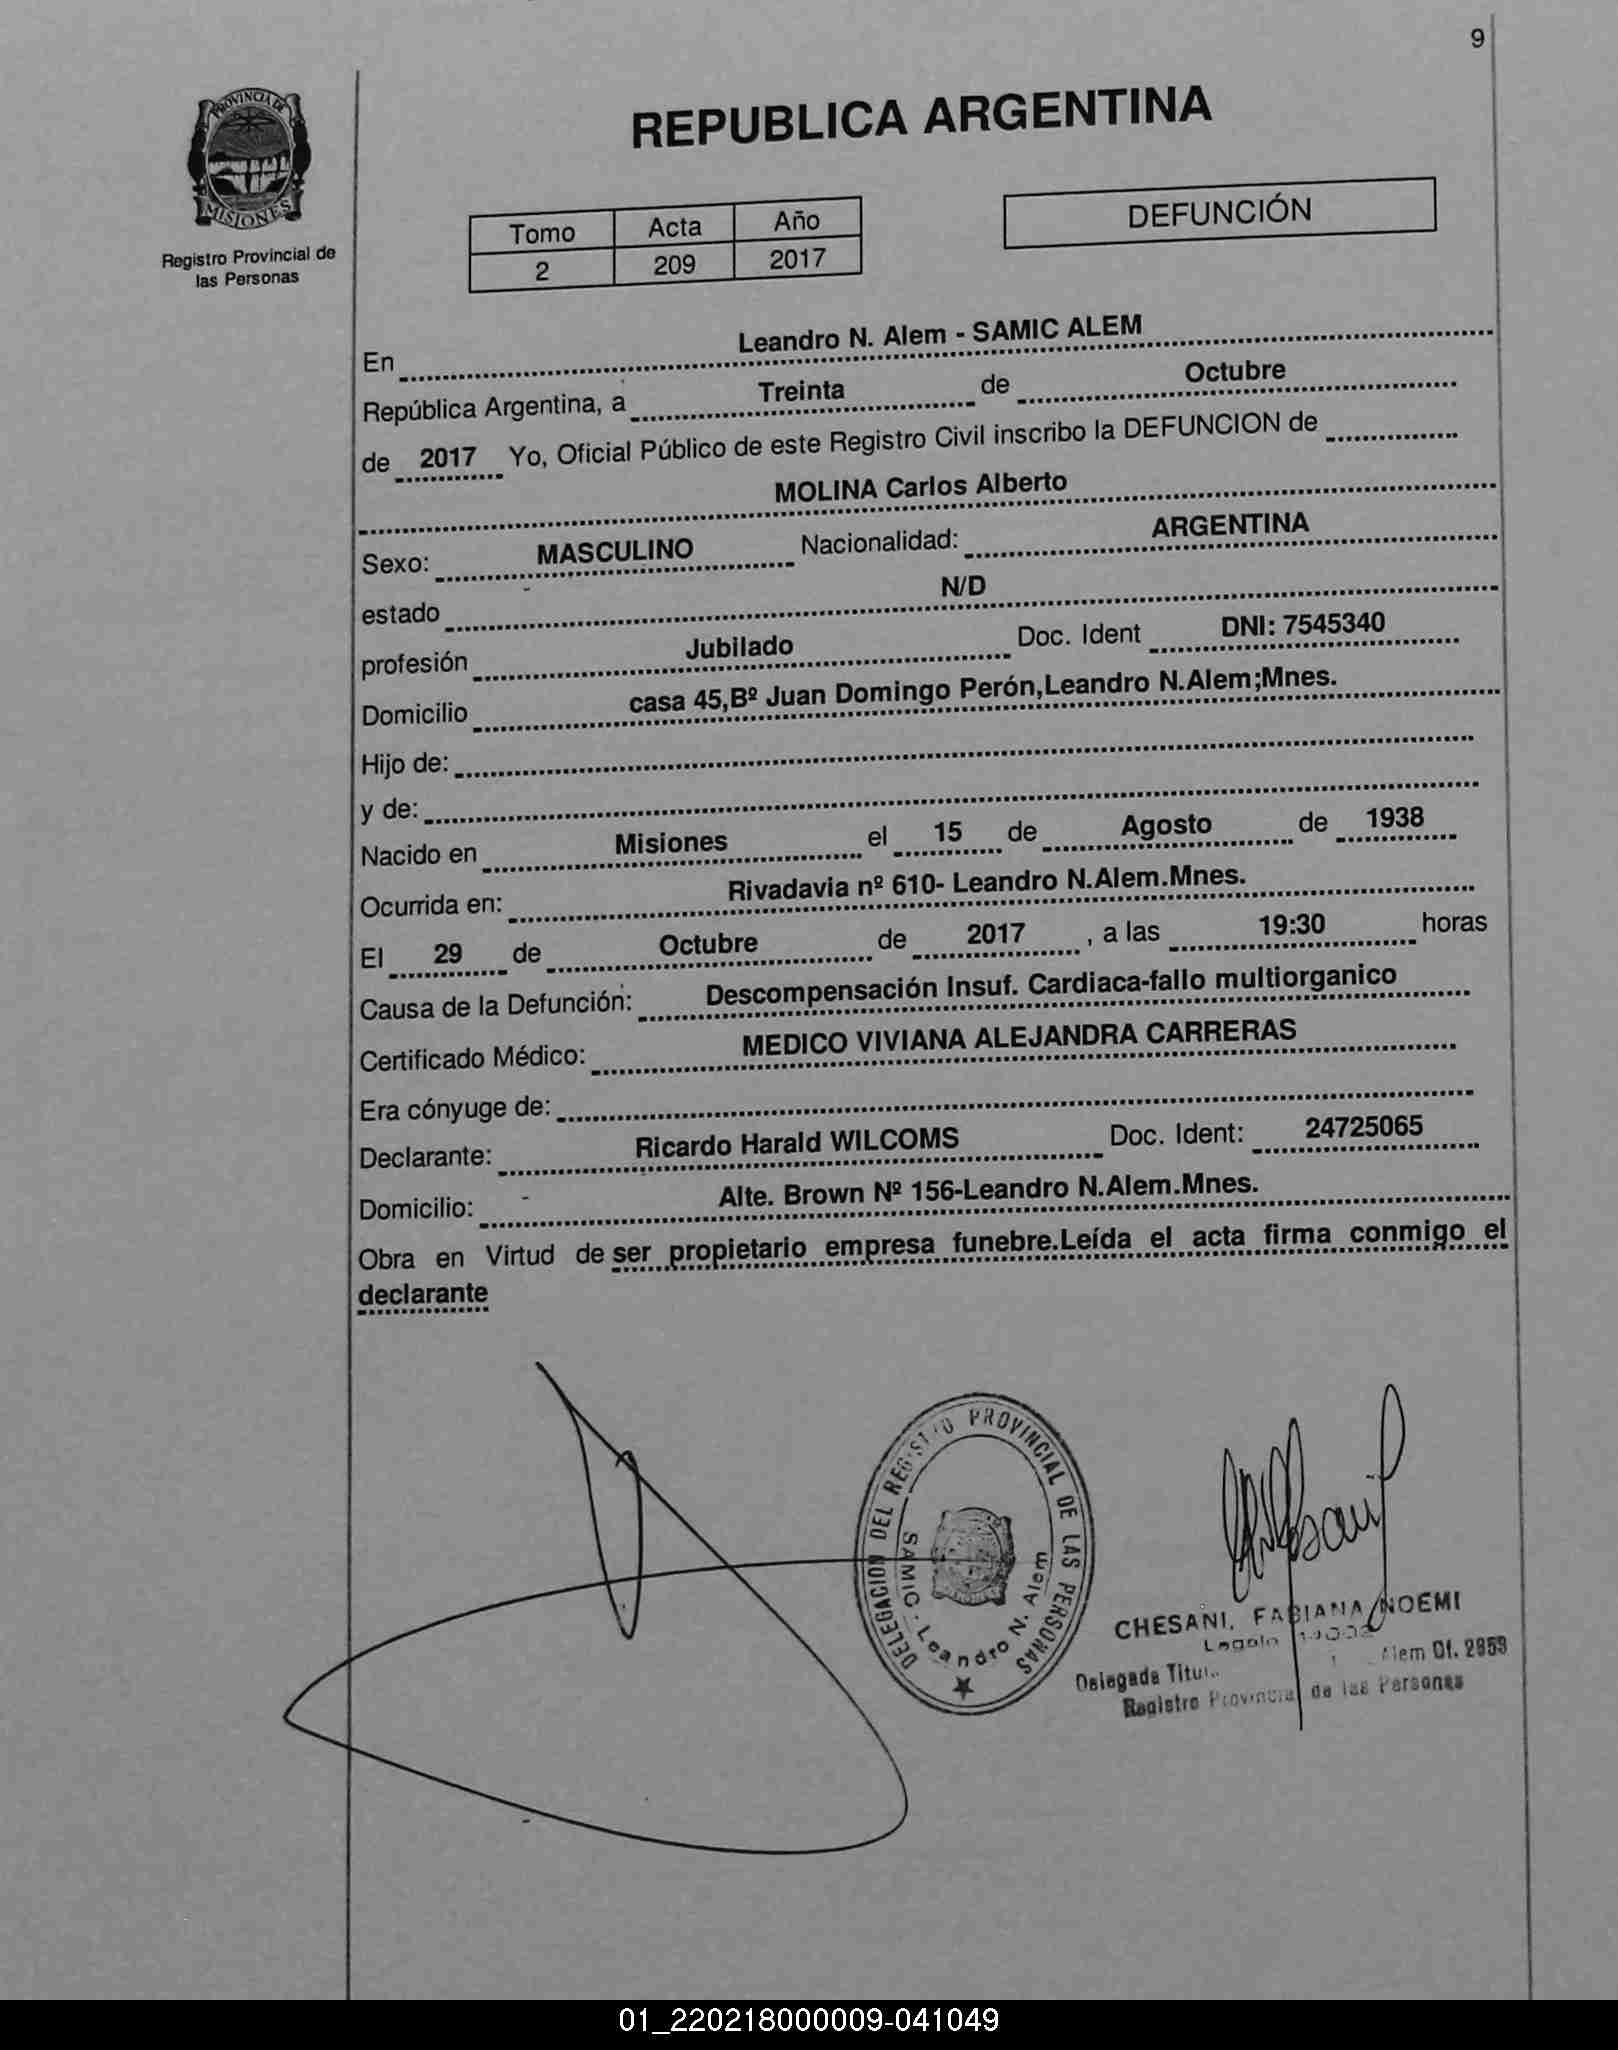 9
PROVINCIA DE
MISIONES
Registro Provincial de
las Personas
REPUBLICA ARGENTINA
Tomo Acta Año
2 209 2017
DEFUNCIÓN
En Leandro N. Alem - SAMIC ALEM
República Argentina, a Treinta de Octubre
de 2017 Yo, Oficial Público de este Registro Civil inscribo la DEFUNCION de
MOLINA Carlos Alberto
Sexo: MASCULINO Nacionalidad: ARGENTINA
estado N/D
profesión Jubilado Doc. Ident DNI: 7545340
Domicilio casa 45,Bº Juan Domingo Perón,Leandro N.Alem;Mnes.
Hijo de:
y de:
Nacido en Misiones el 15 de Agosto de 1938
Ocurrida en: Rivadavia nº 610- Leandro N.Alem.Mnes.
El 29 de Octubre de 2017 , a las 19:30 horas
Causa de la Defunción: Descompensación Insuf. Cardiaca-fallo multiorganico
Certificado Médico: MEDICO VIVIANA ALEJANDRA CARRERAS
Era cónyuge de:
Declarante: Ricardo Harald WILCOMS Doc. Ident: 24725065
Domicilio: Alte. Brown Nº 156-Leandro N.Alem.Mnes.
Obra en Virtud de ser propietario empresa funebre.Leída el acta firma conmigo el
declarante
DELEGACION DEL REGISTRO PROVINCIAL DE LAS PERSONAS
SAMIC - Leandro N. Alem
CHESANI, FABIANA NOEMI
Delegada Alem Of. 2853
Registro Provincial de las Personas
01_220218000009-041049